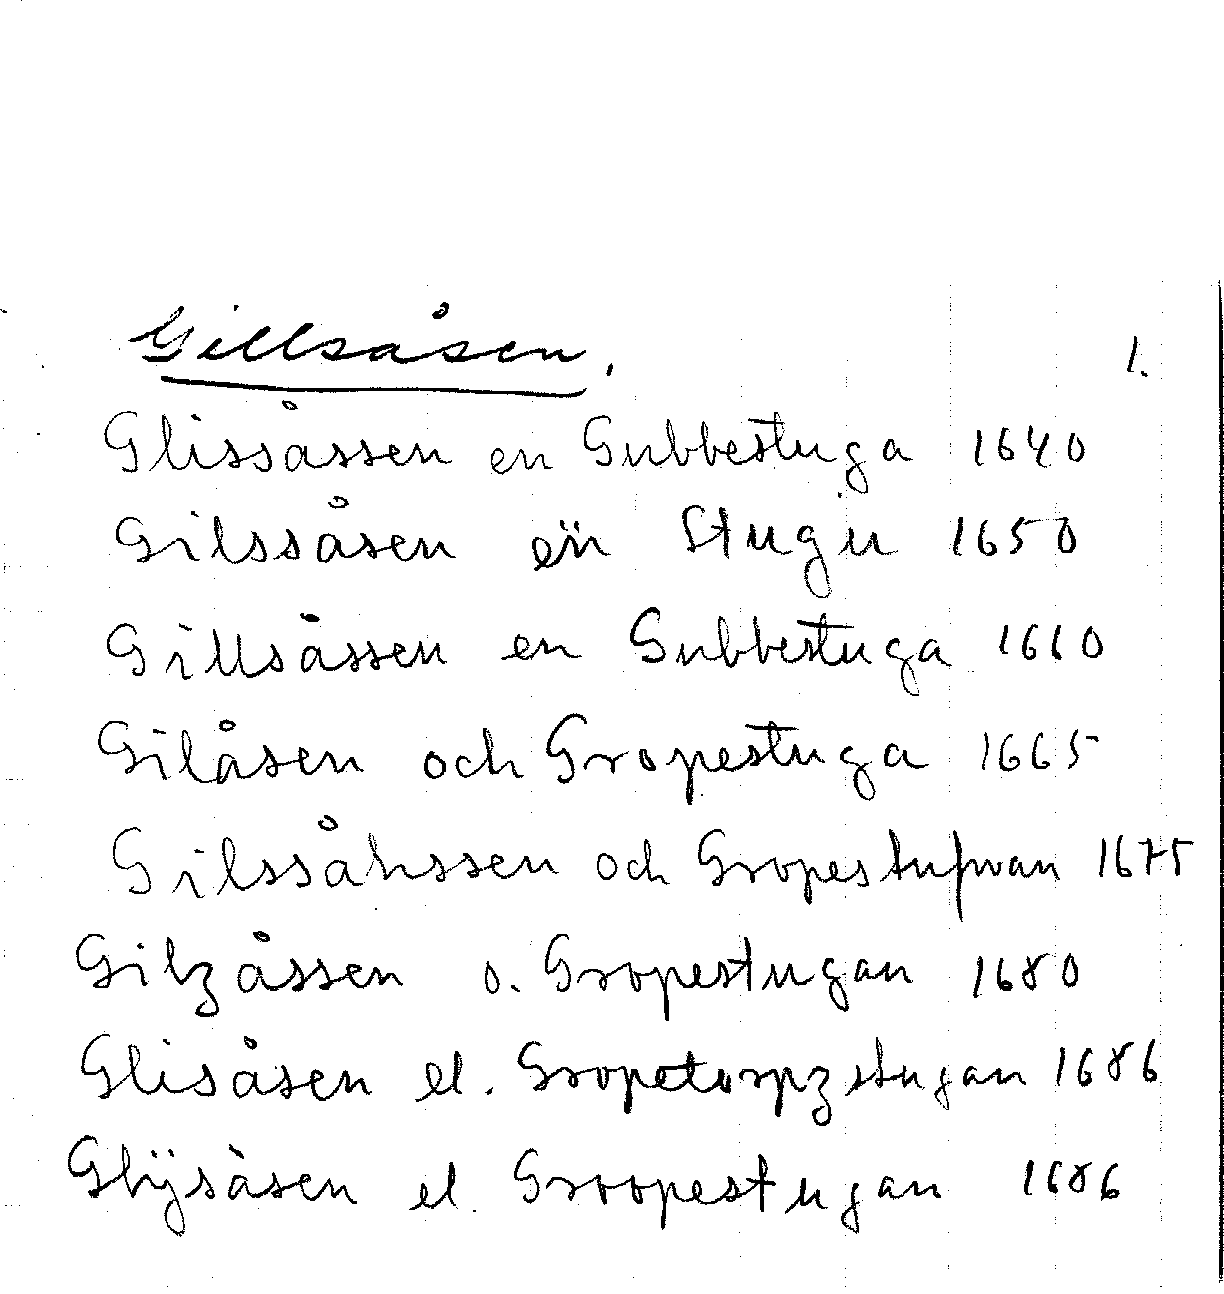 Gillsåsen. 1.
Glissåssen en Gubbestuga 1640
Gilssåsen en Stugu 1650
Gillsåssen en Gubbestuga 1660
Gilåsen och Gropestuga 1665
Gilssåhssen och Gropestufwan 1675
Gilzåssen o. Gropestugan 1680
Glisåsen el. Gropetorpzstugan 1686
Glÿsåsen el. Groopestugan 1686